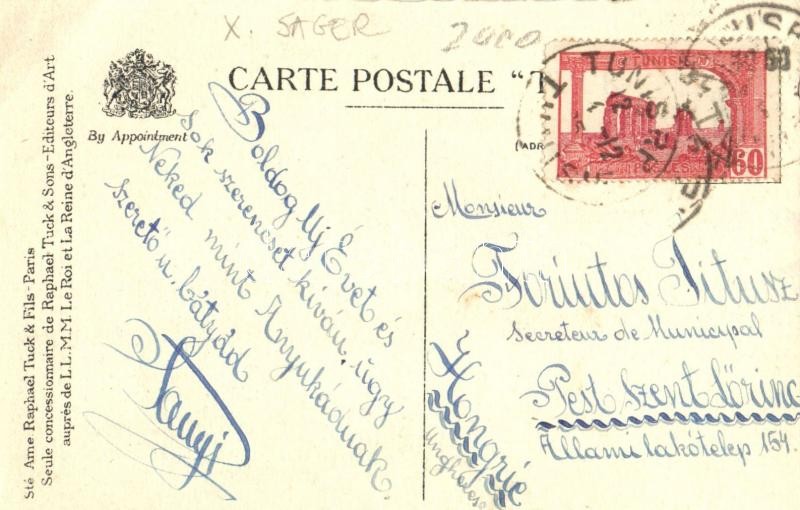 X. SAGER
2000
CARTE POSTALE "T
By Appointment
(ADR
TUNISIE
60
POSTES
TUNIS
Boldog Új Évet és
sok szerencsét kíván úgy
Neked mint Anyukádnak
szerető u. bátyád
Monsieur
Forintos Titusz
Secreteur de Municipal
Pest Szent Lőrinc
Állami lakótelep 154.
Hongrie
Sté Ame Raphael Tuck & Fils - Paris
Seule concessionnaire de Raphael Tuck & Sons - Editeurs d'Art
auprès de L.L.M.M. Le Roi et La Reine d'Angleterre.